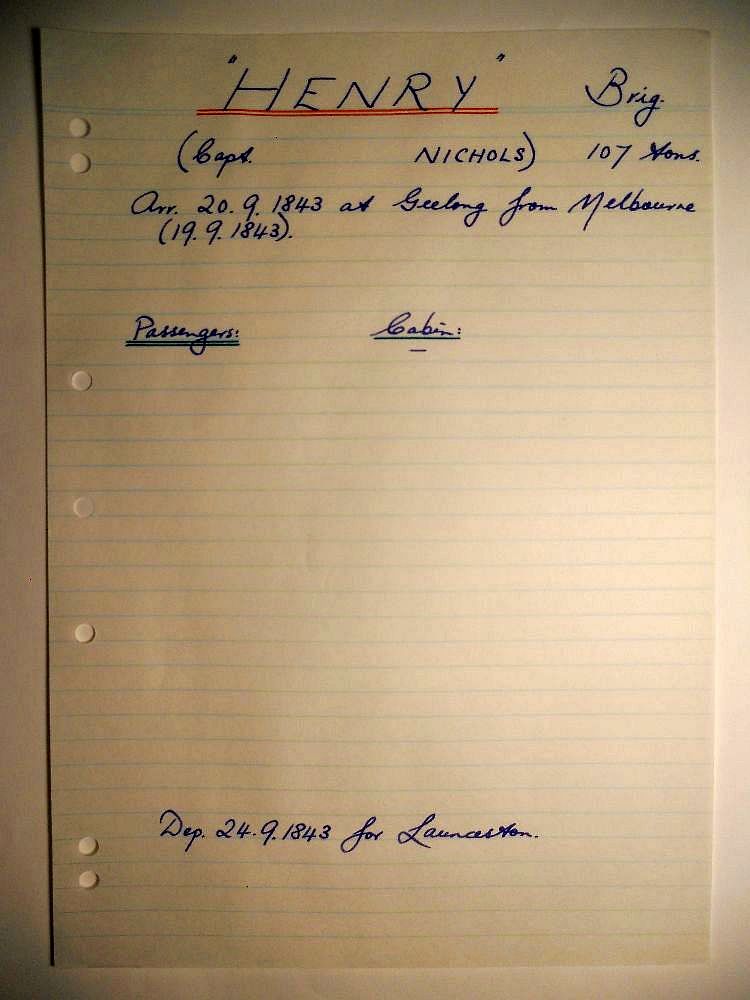 "HENRY" Brig.
(Capt. NICHOLS) 107 tons.
Arr. 20.9.1843 at Geelong from Melbourne
(19.9.1843).
Passengers: Cabin:
—
Dep. 24.9.1843 for Launceston.